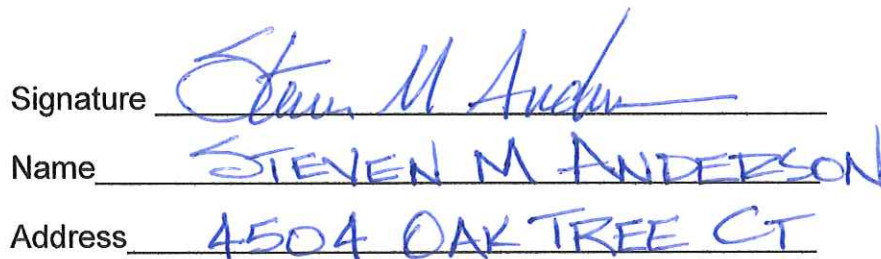 Signature Steven M Anderson
Name STEVEN M ANDERSON
Address 4504 OAK TREE CT